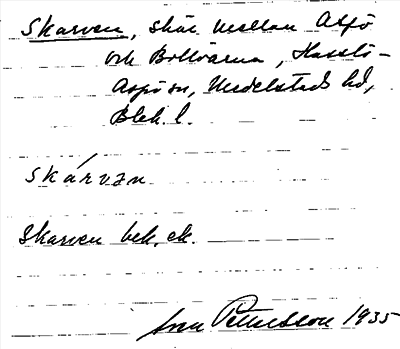 Skarven, skär mellan Aspö
och Bollöarna, Hasslö-
Aspö sn, Medelstads hd,
Blek. l.
skárvən
Skarven bek. ek.
Sven Pettersson 1935